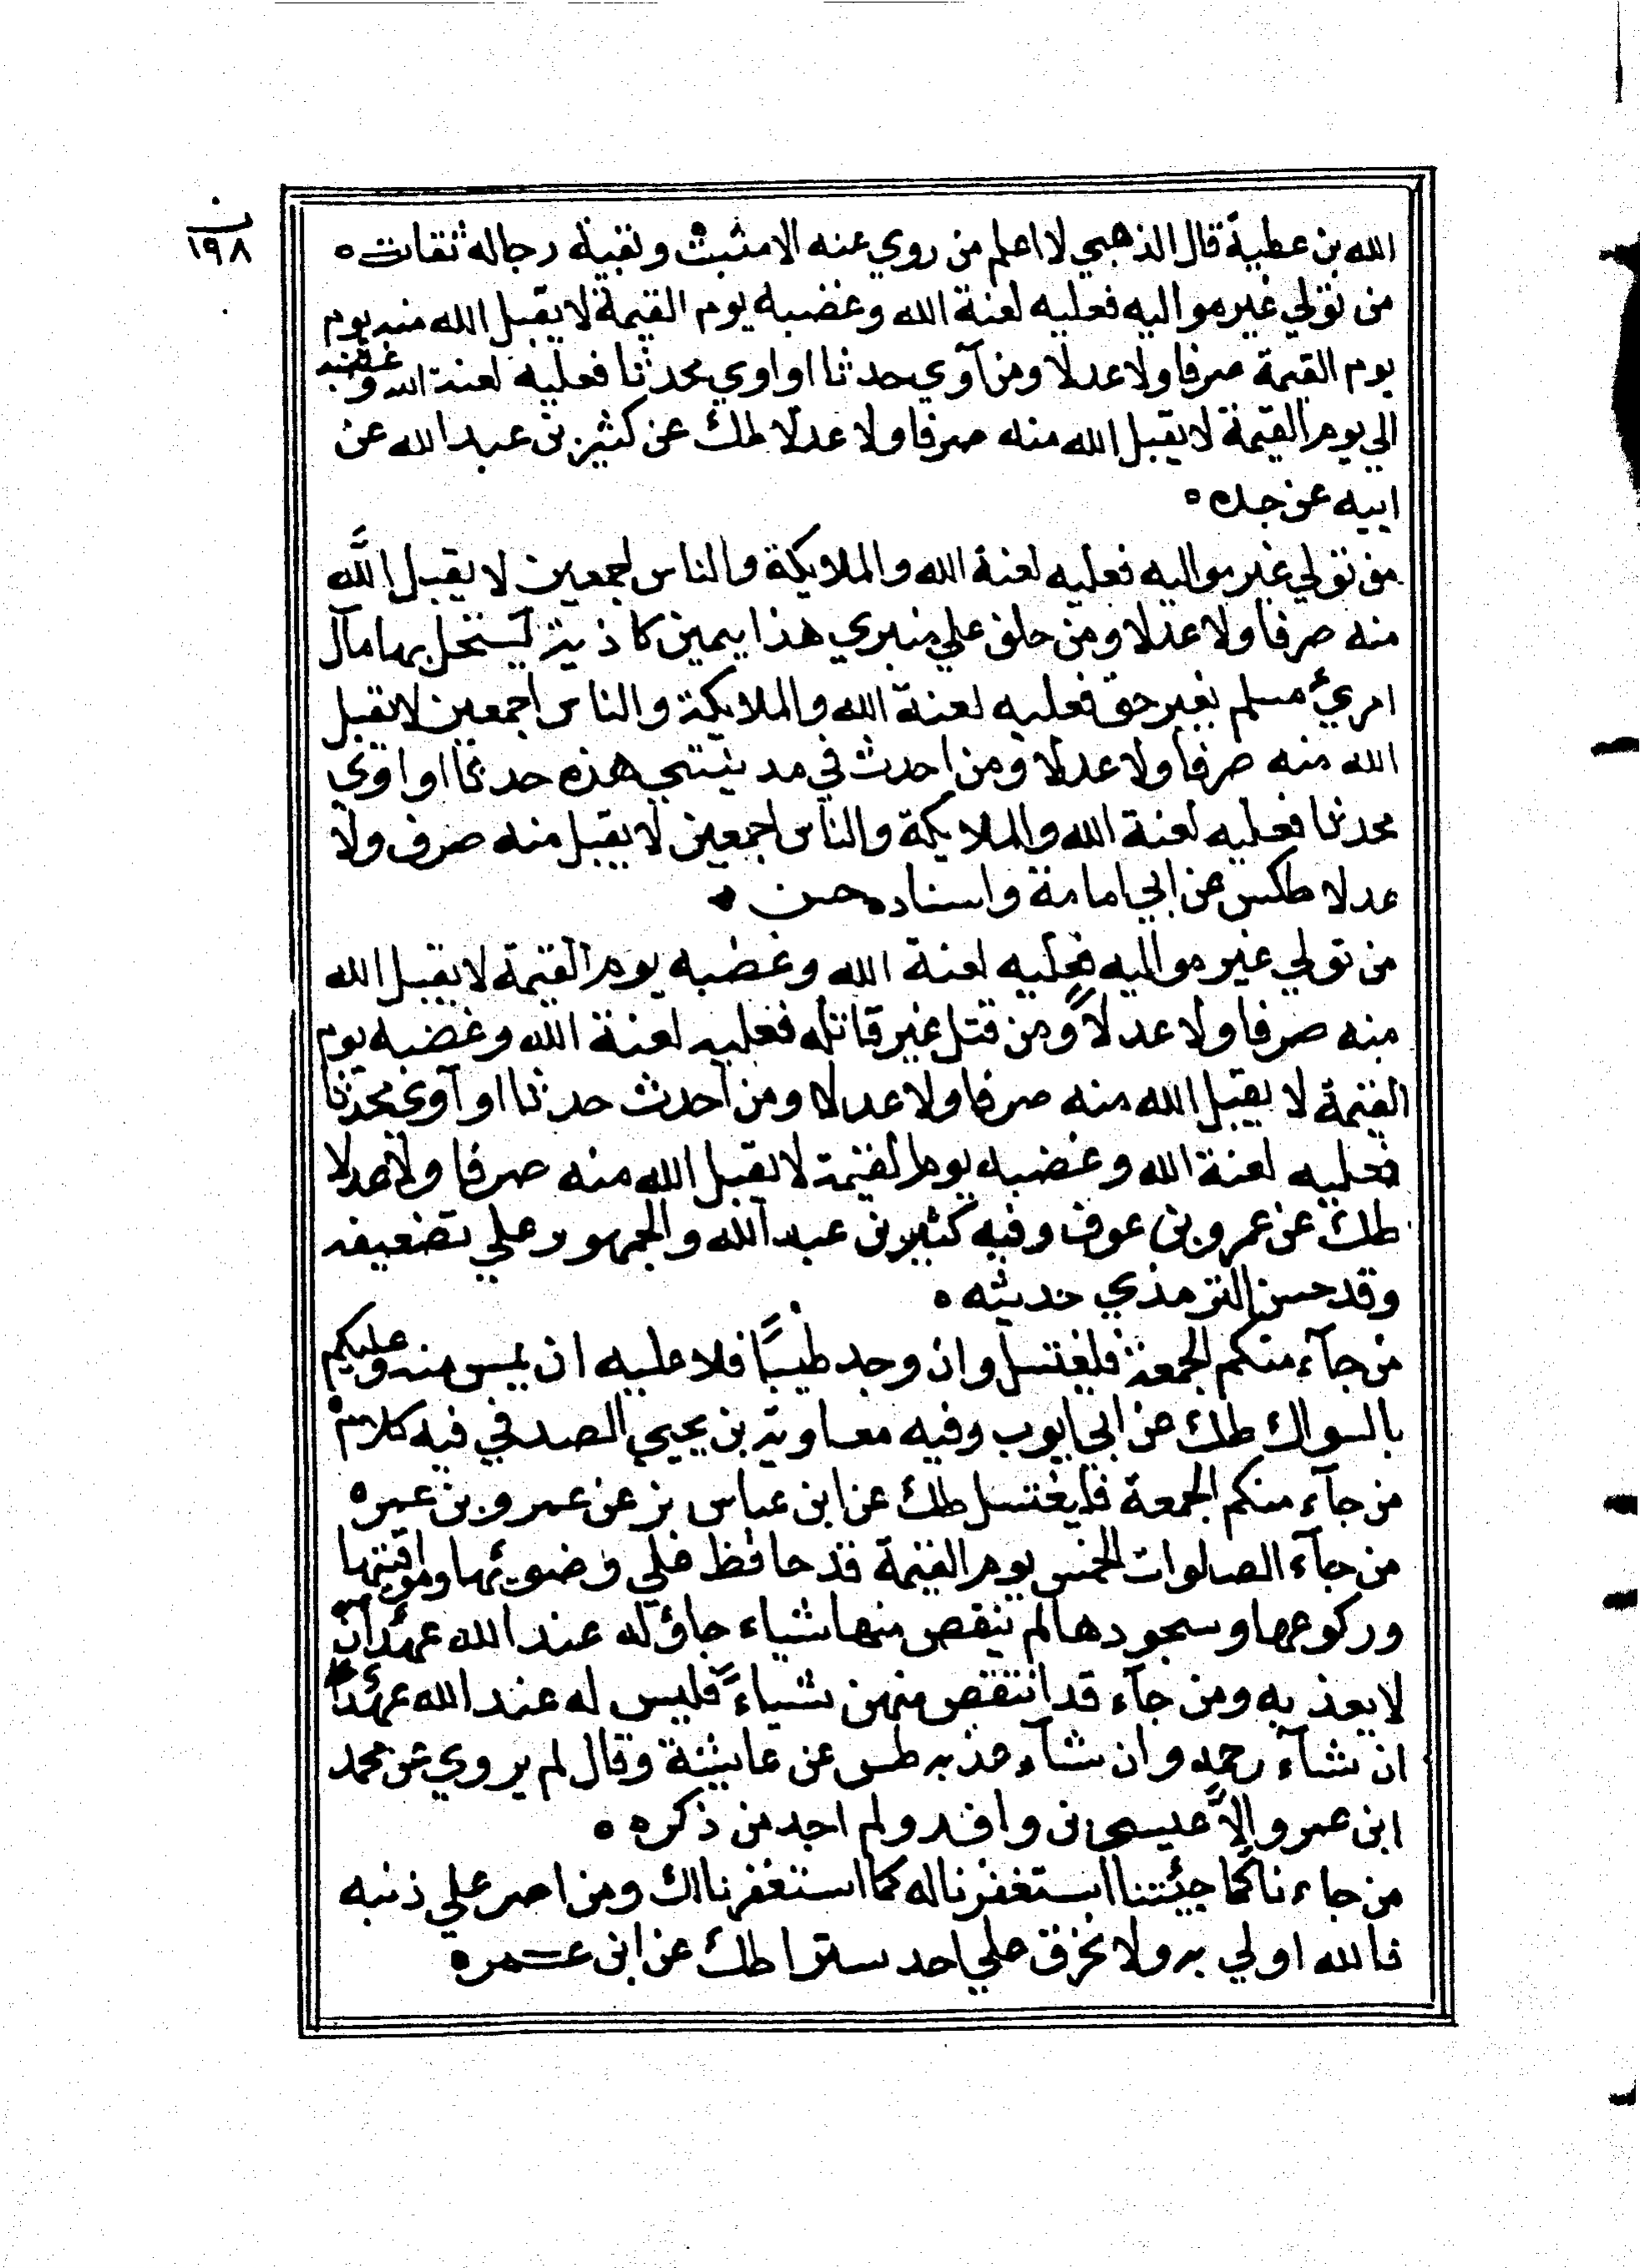 ١٩٨
الله بن عطية قال الذهبي لا اعلم من روي عنه الامثبت وبقية رجاله ثقات ه
من تولي غير مواليه فعليه لعنة الله وغضبه يوم القيمة لا يقبل الله منه يوم
يوم القيمة صرفا ولا عدلا ومن آوي حدثا او اوي محدثا فعليه لعنة الله وغضبه
الي يوم القيمة لا يقبل الله منه صرفا ولا عدلا طك عن كثير بن عبد الله عن
ابيه عن جده ه
من تولي غير مواليه فعليه لعنة الله والملايكة والناس اجمعين لا يقبل الله
منه صرفا ولا عدلا ومن حلف علي منبري هذا بيمين كاذبة يستحل بها مال
امريء مسلم بغير حق فعليه لعنة الله والملايكة والناس اجمعين لا يقبل
الله منه صرفا ولا عدلا ومن احدث في مدينتي هذه حدثا او اوي
محدثا فعليه لعنة الله والملايكة والناس اجمعين لا يقبل منه صرف ولا
عدلا طكس عن ابي امامة واسناده حسن ه
من تولي غير مواليه فعليه لعنة الله وغضبه يوم القيمة لا يقبل الله
منه صرفا ولا عدلاً ومن قتل غير قاتله فعليه لعنة الله وغضبه يوم
القيمة لا يقبل الله منه صرفا ولا عدلا ومن احدث حدثا او آوي محدثا
فعليه لعنة الله وغضبه يوم القيمة لا يقبل الله منه صرفا ولا عدلا
طك عن عمرو بن عوف وفيه كثير بن عبد الله والجمهور علي تضعيفه
وقد حسن الترمذي حديثه ه
من جآء منكم الجمعة فليغتسل وان وجد طيبًا فلا عليه ان يمس منه وعليكم
بالسواك طك عن ابي ايوب وفيه معاوية بن يحيي الصدفي فيه كلام ه
من جآء منكم الجمعة فليغتسل طك عن ابن عباس بز عن عمرو بن عمره
من جآء الصلوات الخمس يوم القيمة قد حافظ علي وضوئها ومواقيتها
وركوعها وسجودها لم ينقص منها شياء جاؤله عند الله عهدان
لا يعذبه ومن جآء قد انتقص منهن شياءً فليس له عند الله عهدا
ان شآء رحمه وان شآء عذبه طس عن عايشة وقال لم يروي عن محمد
ابن عمرو الاَّ عيسى بن واقد ولم اجد من ذكره ه
من جاءنا كما جئتنا استغفرنا له كما استغفرنا لك ومن اصر علي ذنبه
فالله اولي به ولا نخرق علي احد سترا طك عن ابن عمره